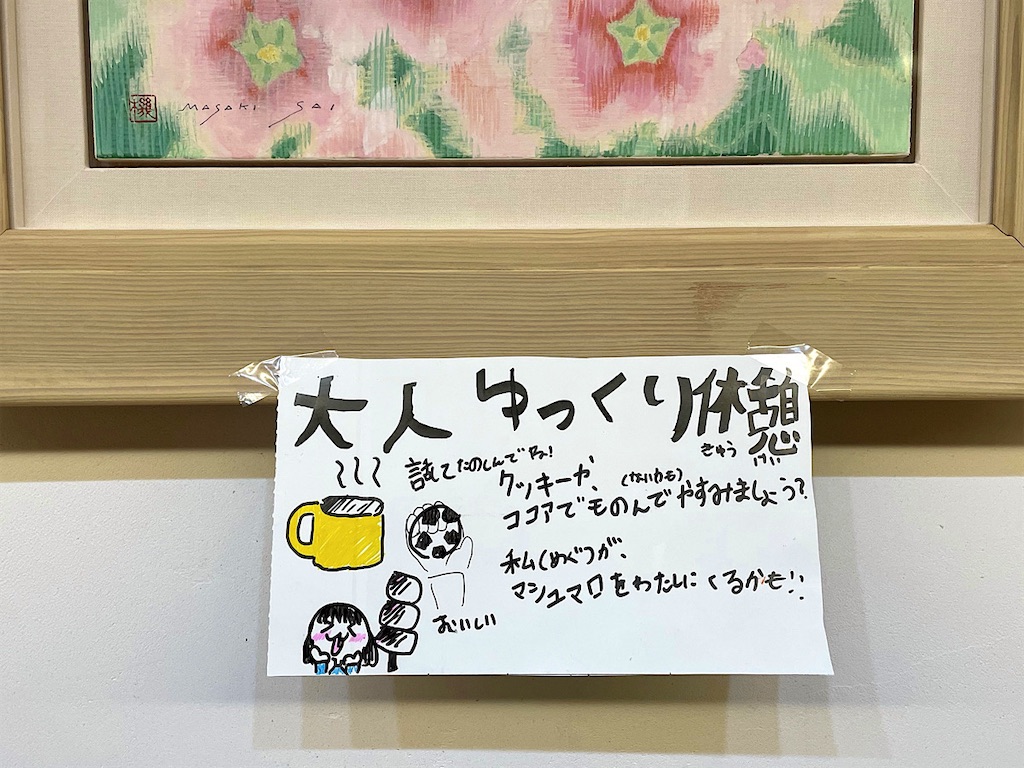 MASAKI SAI
大人 ゆっくり休憩
きゅうけい
話してたのしんでね!
クッキーや、
(ないかも)
ココアでものんでやすみましょう?
私(めぐ)が、
マシュマロをわたしにくるかも!!
おいしい